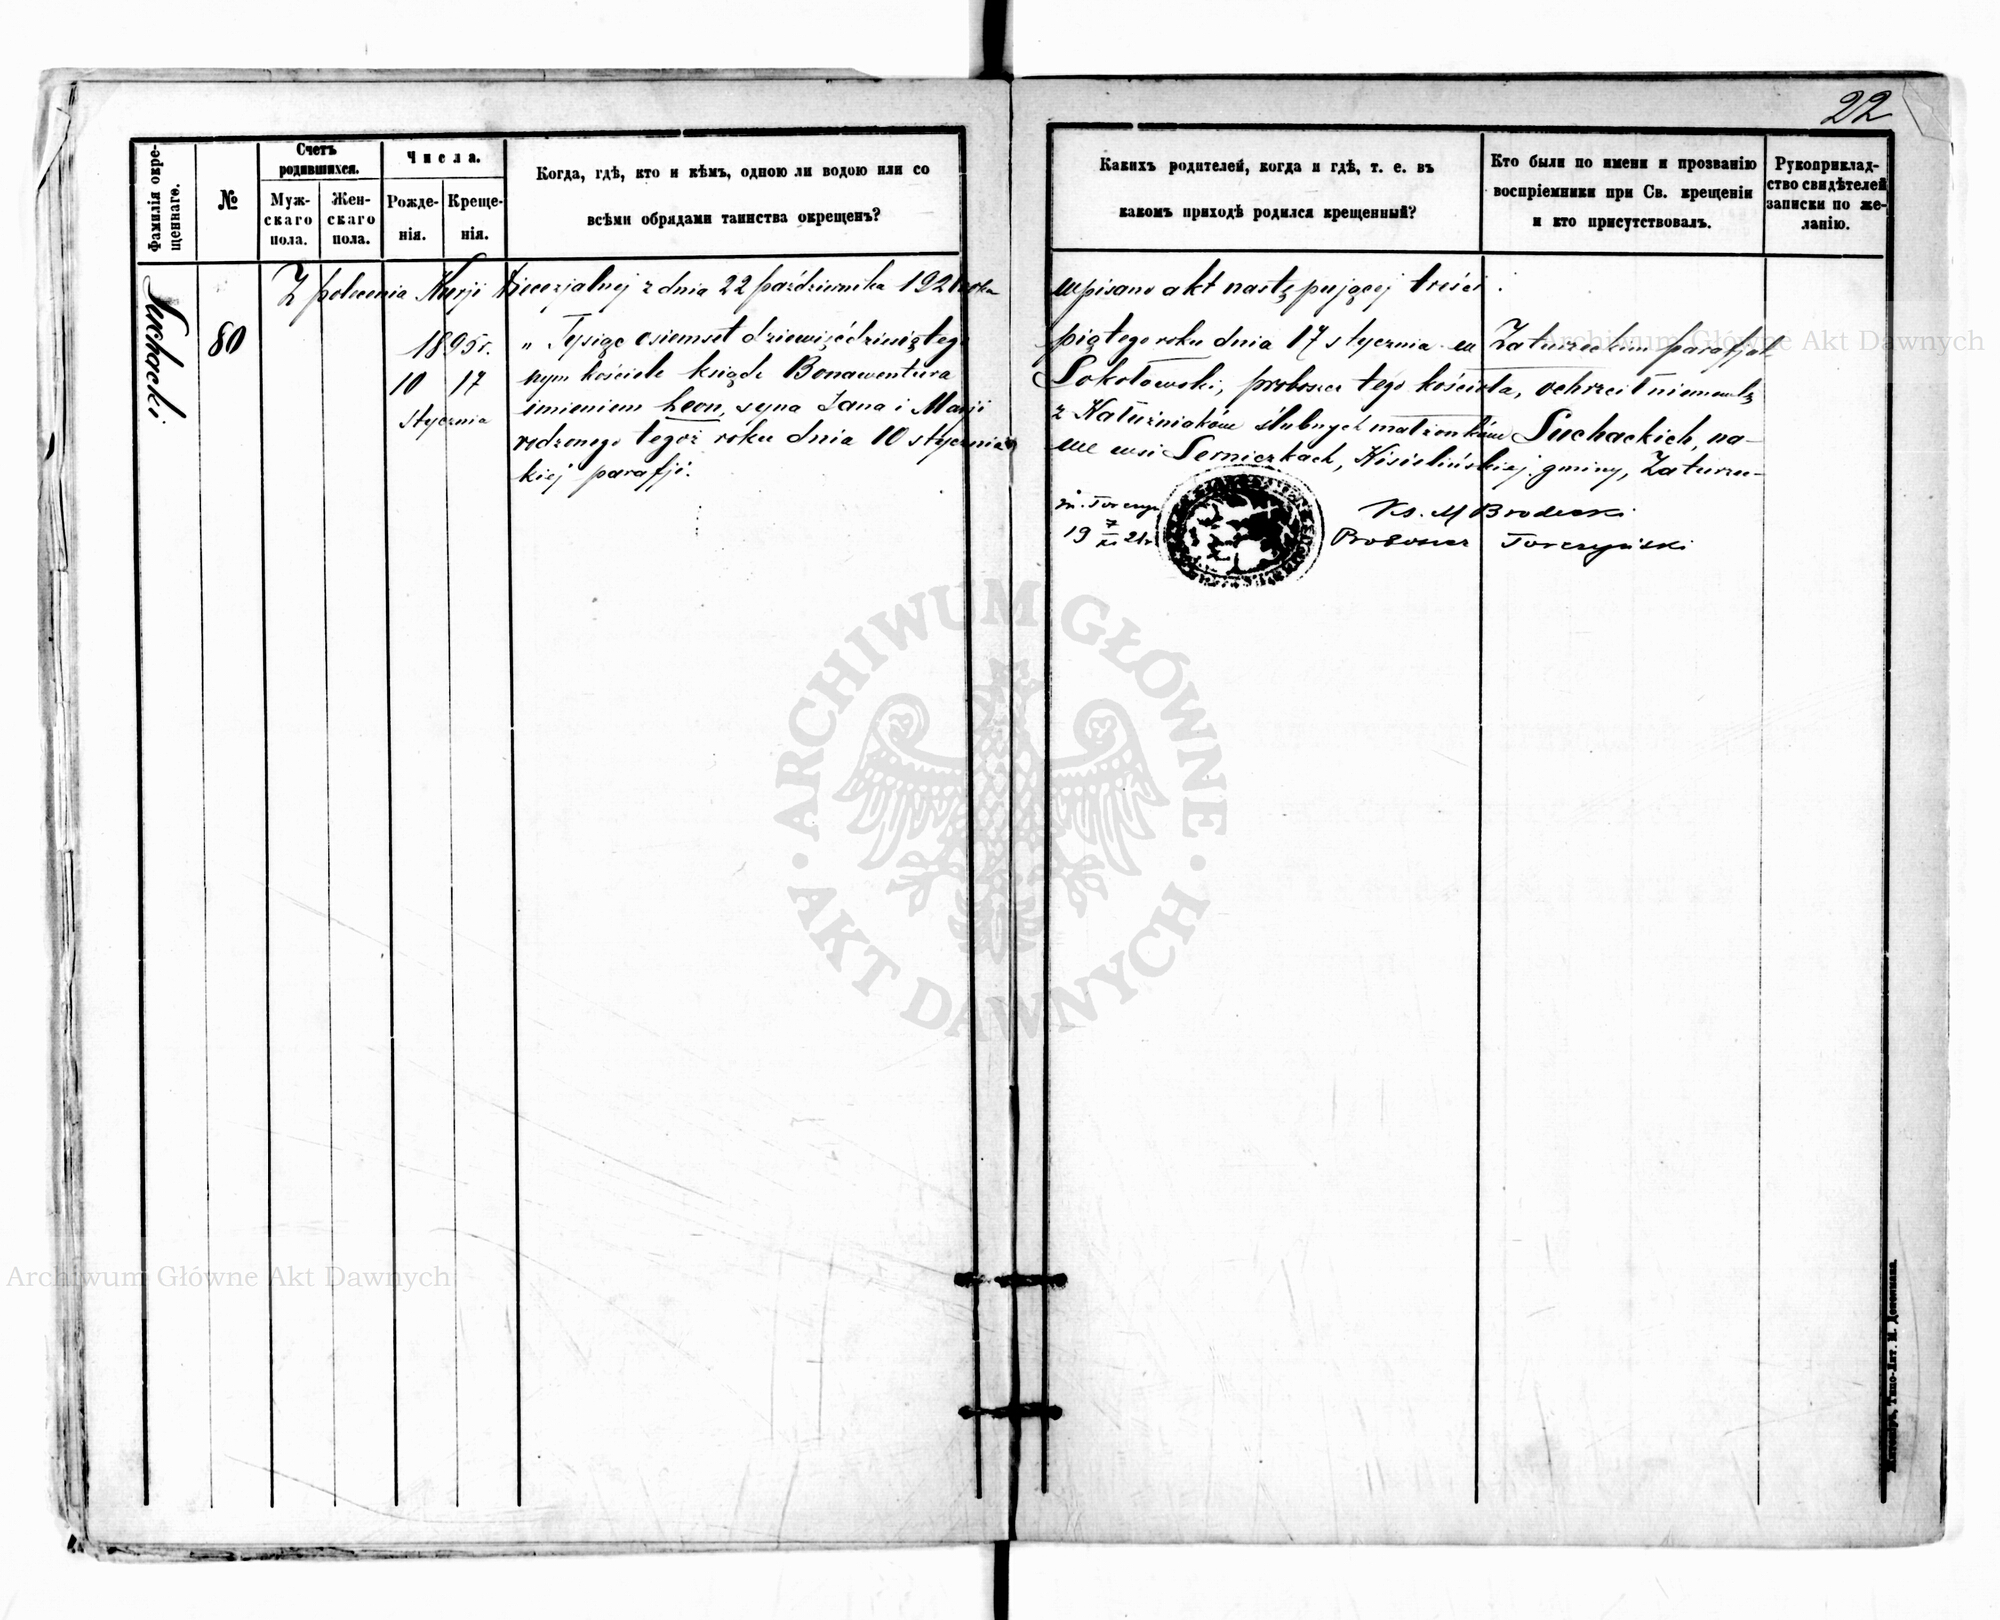 22
Фамилія окре-
щеннаго.
№
Счетъ
родившихся.
Муж-
скаго
пола.
Жен-
скаго
пола.
Числа.
Рожде-
нія.
Креще-
нія.
Когда, гдѣ, кто и кѣмъ, одною ли водою или со
всѣми обрядами таинства окрещенъ?
Какихъ родителей, когда и гдѣ, т. е. въ
какомъ приходѣ родился крещенный?
Кто были по имени и прозванію
воспріемники при Св. крещеніи
и кто присутствовалъ.
Рукоприклад-
ство свидѣтелей
записки по же-
ланію.
Suchacki.
80
Z polecenia Kurji Diecezjalnej z dnia 22 października 1921 roku wpisano akt następującej treści:
1895 r.
10 17
stycznia
„Tysiąc osiemset dziewięćdziesiątego piątego roku dnia 17 stycznia w Zaturzeckim parafjal
nym kościele ksiądz Bonawentura Sokołowski, proboszcz tego kościoła, ochrzcił niemowlę
imieniem Leon, syna Jana i Marji z Kałużniaków ślubnych małżonków Suchackich, na-
rodzonego tegoż roku dnia 10 stycznia we wsi Serniczkach, Kisielińskiej gminy, Zaturzec-
kiej parafji.
m. Torczyn
19 7/XI 21 r.
Ks. M Brodecki
Proboszcz Torczyński
ARCHIWUM GŁÓWNE
AKT DAWNYCH
Archiwum Główne Akt Dawnych
Archiwum Główne Akt Dawnych
Житомиръ, Типо-Лит. М. Дененмана.